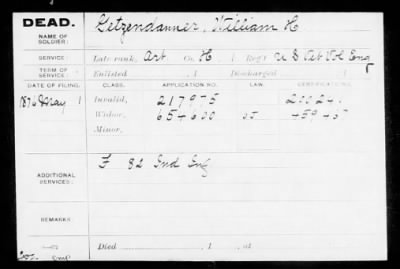 DEAD. Getzendanner, William H
NAME OF SOLDIER:
SERVICE: Late rank, Art Co. H, 1 Reg't U S Vet Vol Eng
TERM OF SERVICE: Enlisted , 1 Discharged , 1
DATE OF FILING. CLASS. APPLICATION NO. LAW. CERTIFICATE NO.
1876 May 1 Invalid, 217975
Widow, 654600
Minor,
ADDITIONAL SERVICES: F 82 Ind Inf
REMARKS:
Died , 1 , at